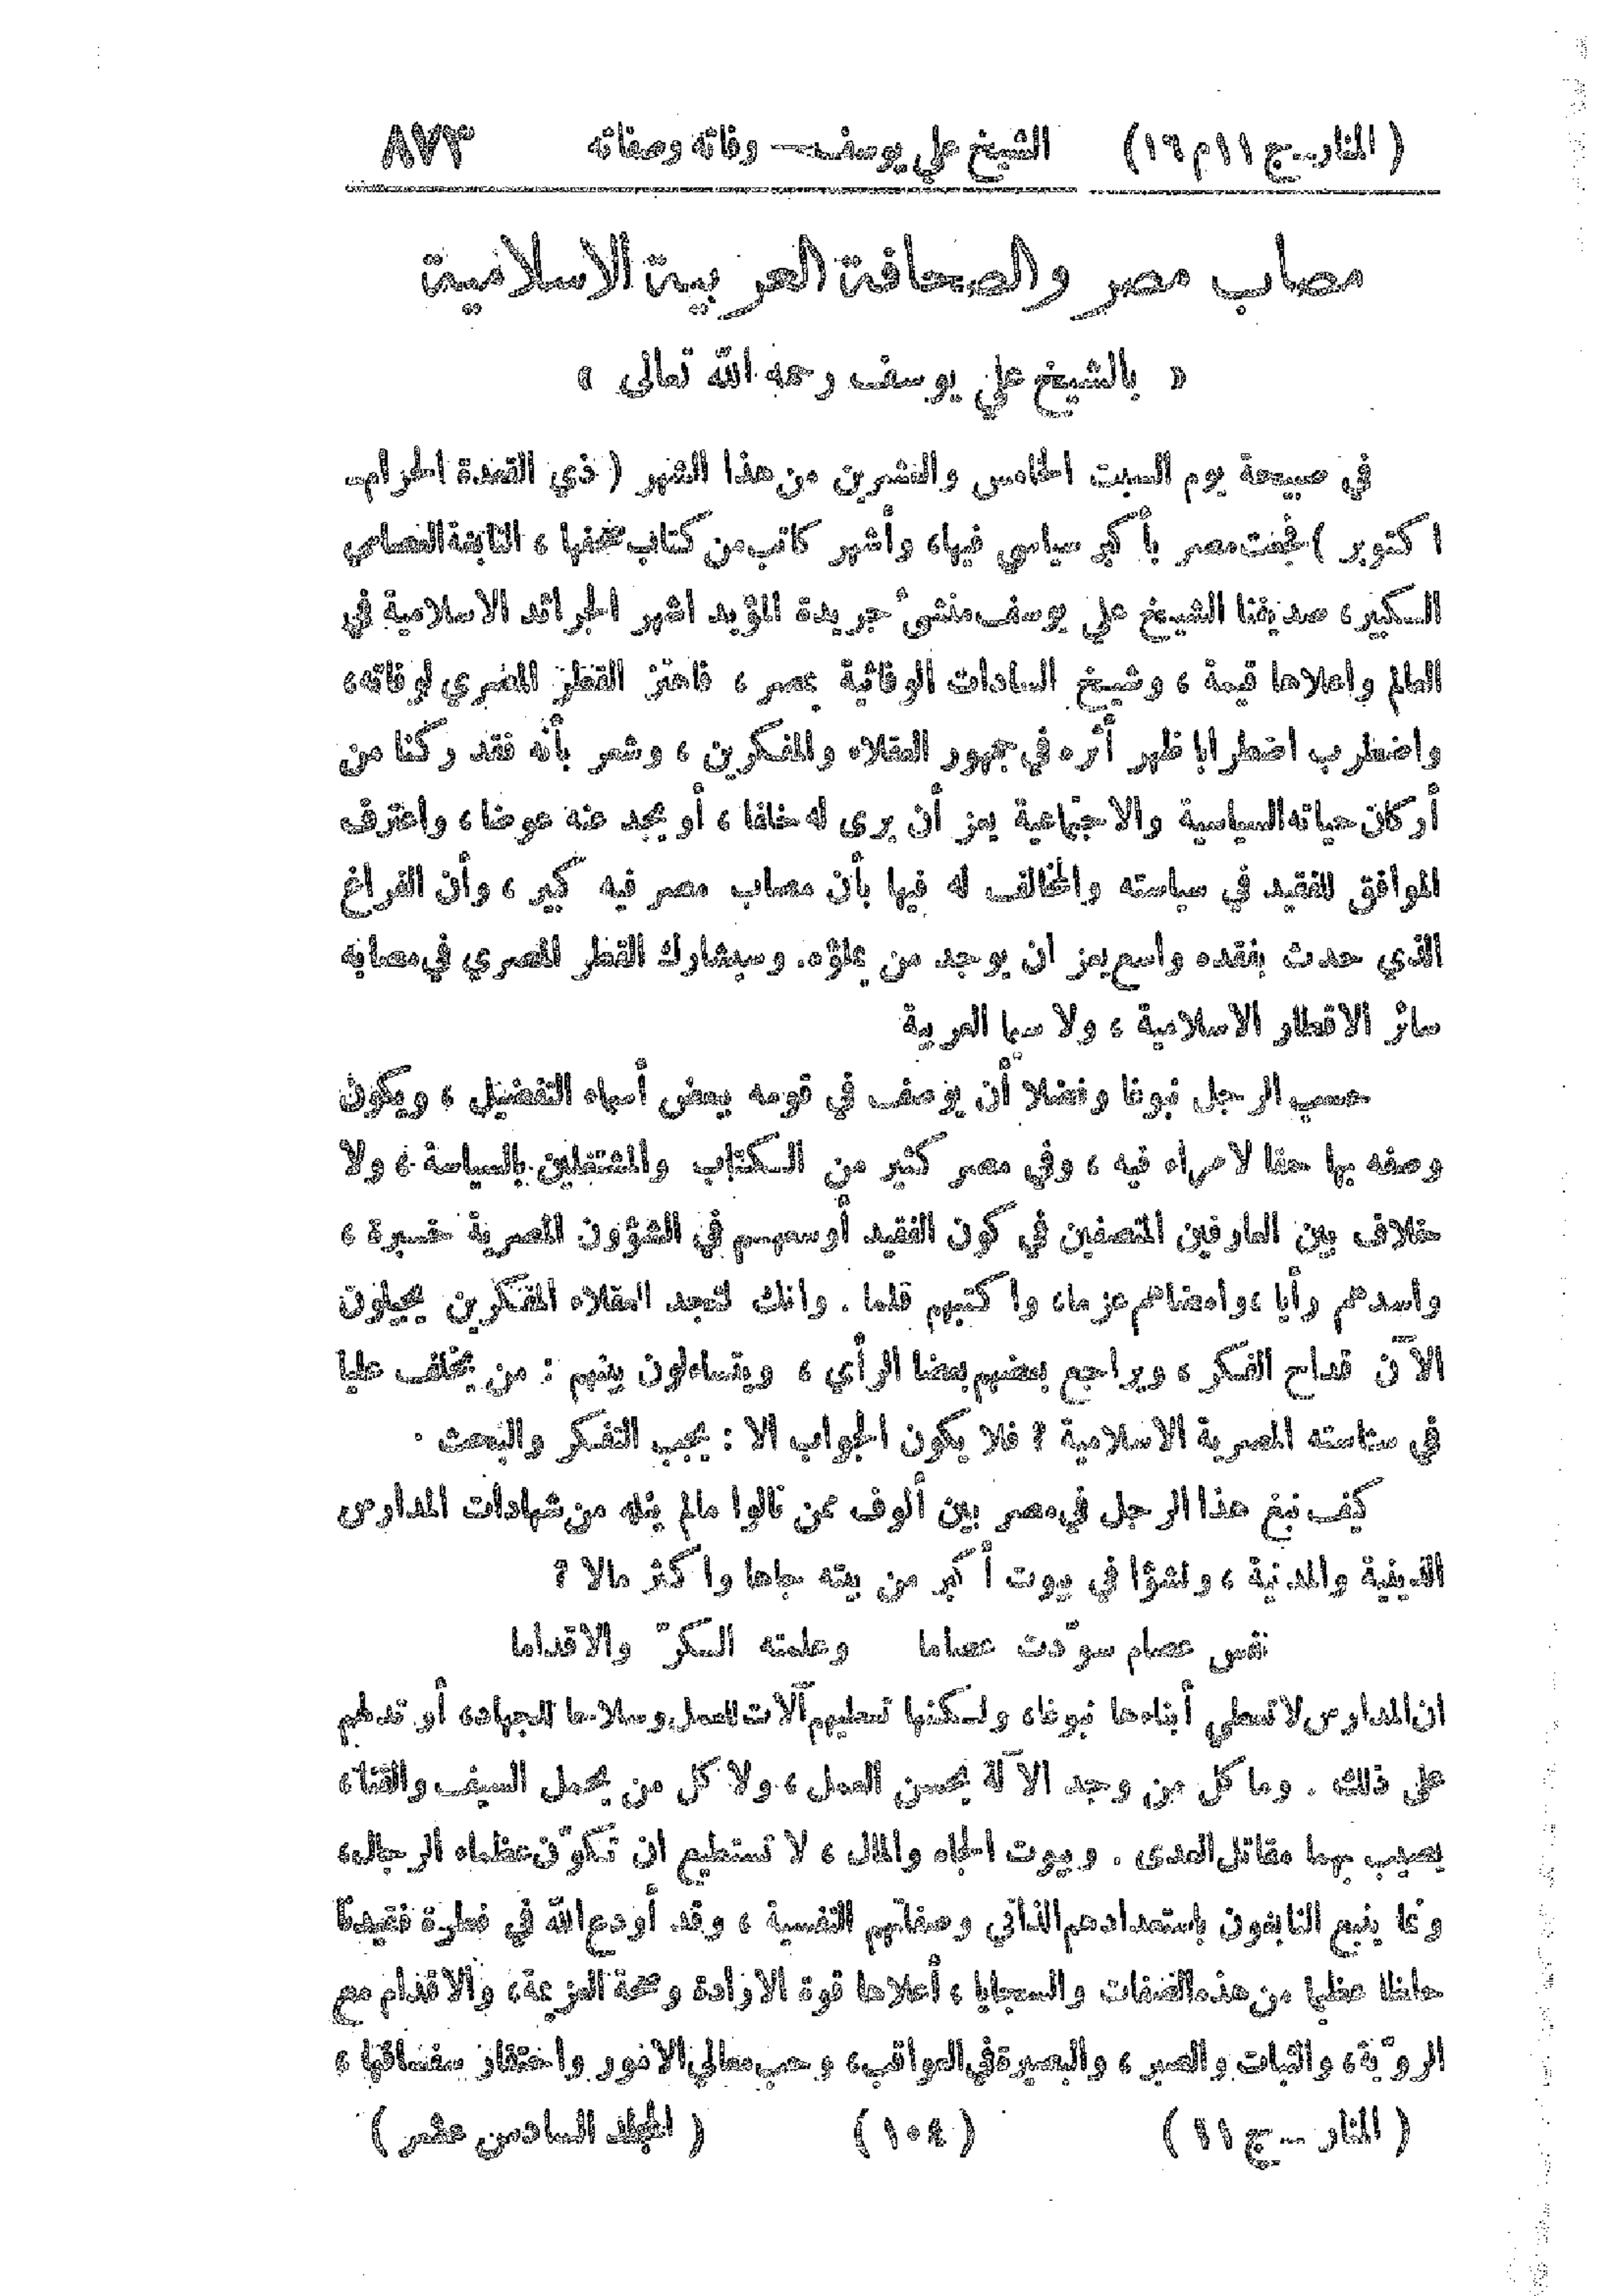 ( المنار ــ ج ١١ م ١٦ ) الشيخ علي يوسف — وفاته وصفاته ٨٧٣
مصاب مصر والصحافة العربية الاسلامية
« بالشيخ علي يوسف رحمه الله تعالى »
في صبيحة يوم السبت الخامس والعشرين من هذا الشهر ( ذي القعدة الحرام ــ
اكتوبر ) فجعت مصر بأكبر سياسي فيها، وأشهر كاتب من كتاب صحفها ، النابغة العصامي
الكبير، صديقنا الشيخ علي يوسف منشئ جريدة المؤيد اشهر الجرائد الاسلامية في
العالم واعلاها قيمة ، وشيخ السادات الوفائية بمصر ، فاهتز القطر المصري لوفاته،
واضطرب اضطرابا ظهر أثره في جمهور العقلاء والمفكرين ، وشعر بأنه فقد ركنا من
أركان حياته السياسية والاجتماعية يعز أن يرى له خلفا ، أو يجد عنه عوضا ، واعترف
الموافق للفقيد في سياسته والمخالف له فيها بأن مصاب مصر فيه كبير ، وأن الفراغ
الذي حدث بفقده واسع يعز ان يوجد من يملؤه. وسيشارك القطر المصري في مصابه
سائر الاقطار الاسلامية ، ولا سيما العربية
حسب الرجل نبوغا وفضلا أن يوصف في قومه ببعض أسماء التفضيل ، ويكون
وصفه بها حقا لا مراء فيه ، وفي مصر كثير من الكتاب والمشتغلين بالسياسة ، ولا
خلاف بين العارفين المنصفين في كون الفقيد أوسعهم في الشؤون المصرية خبرة ،
واسدهم رأيا ، وامضاهم عزما، واكتبهم قلما . وانك لتجد العقلاء المفكرين يجيلون
الآن قداح الفكر ، ويراجع بعضهم بعضا الرأي ، ويتساءلون بينهم : من يخلف عليا
في سياسته المصرية الاسلامية ؟ فلا يكون الجواب الا : يجب التفكر والبحث .
كيف نبغ هذا الرجل في مصر بين ألوف ممن نالوا مالم ينله من شهادات المدارس
الدينية والمدنية ، ونشؤا في بيوت أكبر من بيته جاها واكثر مالا ؟
نفس عصام سوّدت عصاما وعلمته الكرّ والاقداما
ان المدارس لا تعطي أبناءها نبوغا، ولكنها تعطيهم آلات للعمل وسلاحا للجهاد، أو تدلهم
على ذلك . وما كل من وجد الآلة يحسن العمل ، ولا كل من يحمل السيف والقناة،
يصيب بهما مقاتل العدى . وبيوت الجاه والمال ، لا تستطيع ان تكوّن عظماء الرجال،
وانما ينبغ النابغون باستعدادهم الذاتي وصفاتهم النفسية ، وقد أودع الله في فطرة فقيدنا
حظا عظيما من هذه الصفات والسجايا ، أعلاها قوة الارادة وصحة العزيمة، والاقدام مع
الرويّة، والثبات والصبر ، والبصيرة في العواقب، وحب معالي الامور واحتقار سفسافها ،
( المنار ــ ج ١١ ) ( ١٠٤ ) ( المجلد السادس عشر )